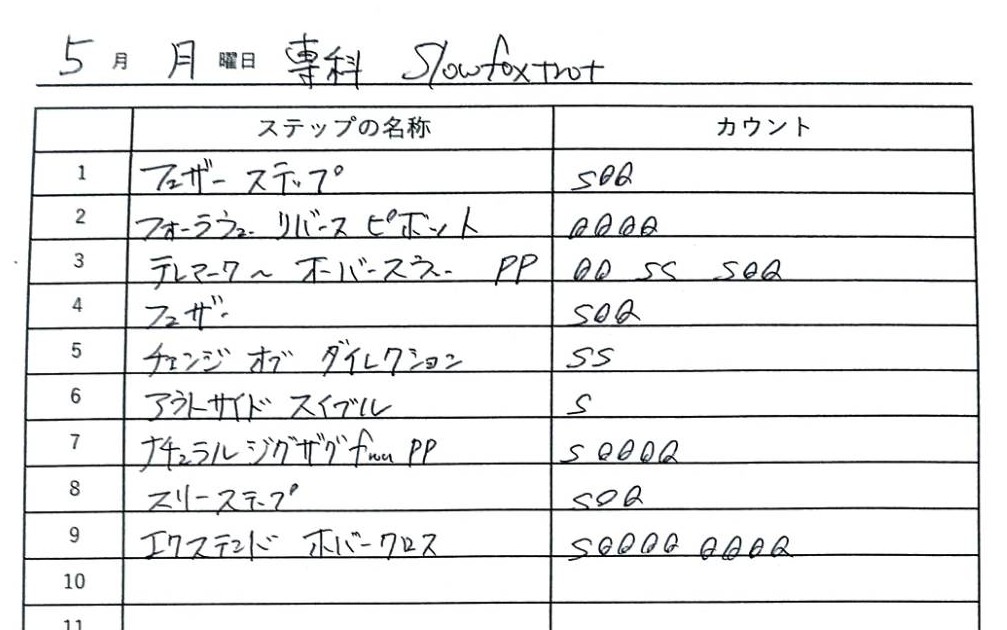 5月 月曜日 専科 Slowfoxtrot
ステップの名称 カウント
1 フェザー ステップ SQQ
2 フォーラウェー リバース ピボット QQQQ
3 テレマーク〜 オーバースウェー PP QQ SS SQQ
4 フェザー SQQ
5 チェンジ オブ ダイレクション SS
6 アウトサイド スイブル S
7 ナチュラル ジグザグ from PP SQQQQ
8 スリーステップ SQQ
9 エクステンド ホバークロス SQQQQ QQQQ
10
11